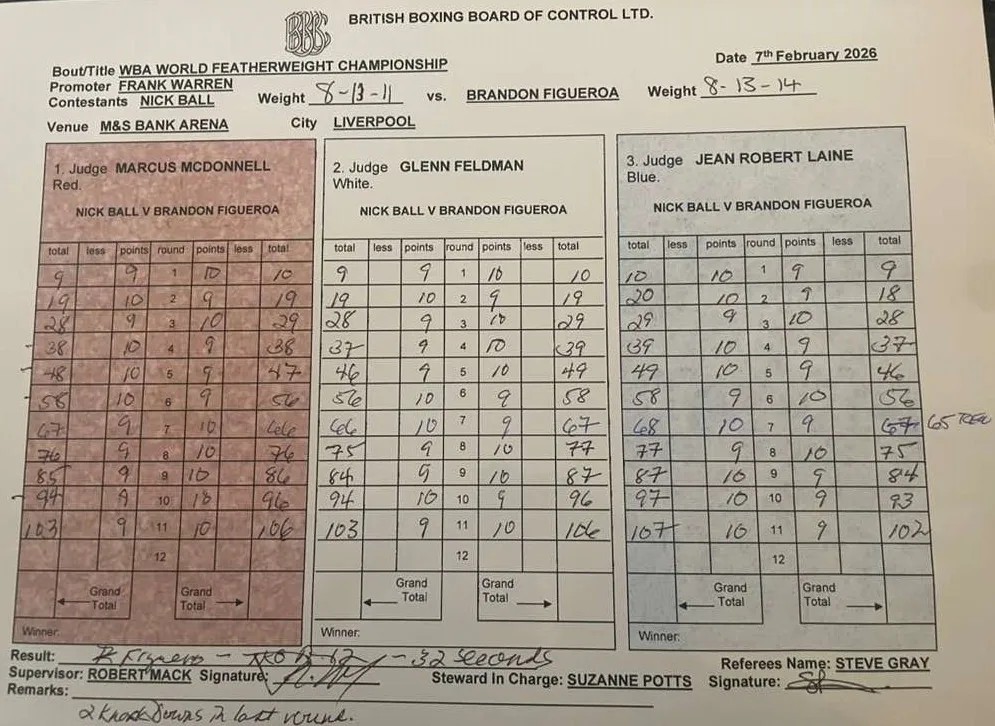 BRITISH BOXING BOARD OF CONTROL LTD.
Date 7th February 2026
Bout/Title WBA WORLD FEATHERWEIGHT CHAMPIONSHIP
Promoter FRANK WARREN
Contestants NICK BALL Weight 8-13-11 vs. BRANDON FIGUEROA Weight 8-13-14
Venue M&S BANK ARENA City LIVERPOOL
1. Judge MARCUS MCDONNELL
Red.
NICK BALL V BRANDON FIGUEROA
total less points round points less total
9 9 1 10 10
19 10 2 9 19
28 9 3 10 29
38 10 4 9 38
48 10 5 9 47
58 10 6 9 56
67 9 7 10 66
76 9 8 10 76
85 9 9 10 86
94 9 10 10 96
103 9 11 10 106
12
Grand Total Grand Total
Winner:
2. Judge GLENN FELDMAN
White.
NICK BALL V BRANDON FIGUEROA
total less points round points less total
9 9 1 10 10
19 10 2 9 19
28 9 3 10 29
37 9 4 10 39
46 9 5 10 49
56 10 6 9 58
66 10 7 9 67
75 9 8 10 77
84 9 9 10 87
94 10 10 9 96
103 9 11 10 106
12
Grand Total Grand Total
Winner:
3. Judge JEAN ROBERT LAINE
Blue.
NICK BALL V BRANDON FIGUEROA
total less points round points less total
10 10 1 9 9
20 10 2 9 18
29 9 3 10 28
39 10 4 9 37
49 10 5 9 46
58 9 6 10 56
68 10 7 9 67 65
77 9 8 10 75
87 10 9 9 84
97 10 10 9 93
107 10 11 9 102
12
Grand Total Grand Total
Winner:
Result: - 32 seconds
Supervisor: ROBERT MACK Signature: Steward In Charge: SUZANNE POTTS
Referees Name: STEVE GRAY
Signature:
Remarks:
2 Knock Downs in last round.